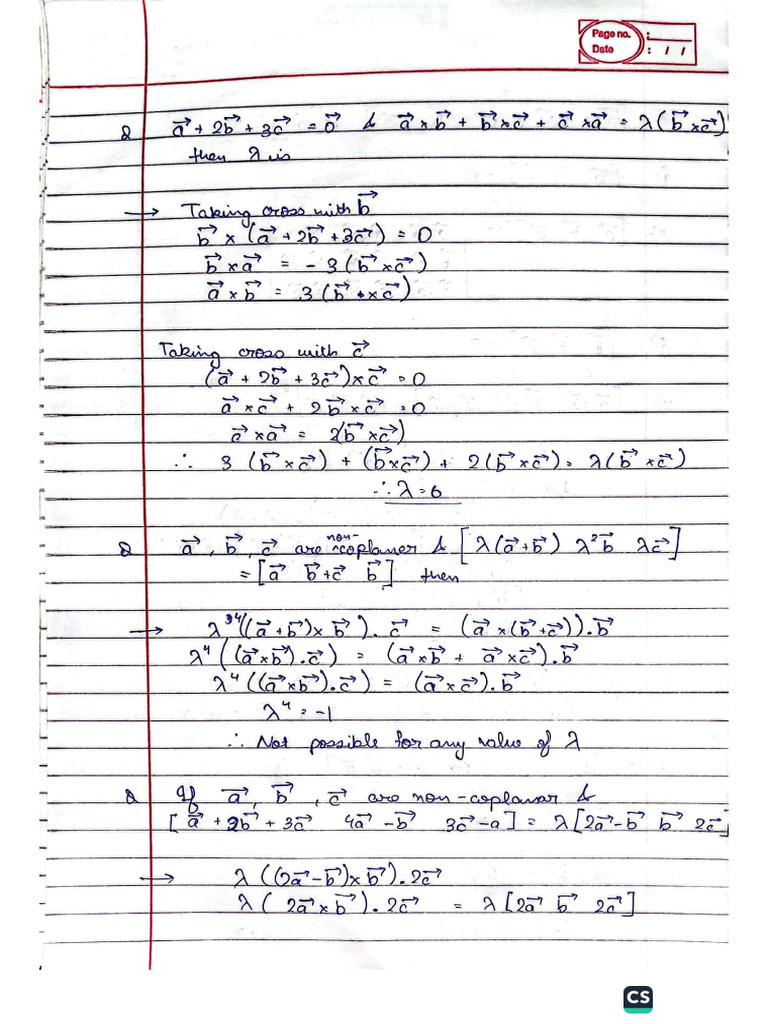 Page no. :
Date : / /
Q a⃗ + 2b⃗ + 3c⃗ = 0⃗ & a⃗ × b⃗ + b⃗ × c⃗ + c⃗ × a⃗ = λ(b⃗ × c⃗)
then λ is
→ Taking cross with b⃗
b⃗ × (a⃗ + 2b⃗ + 3c⃗) = 0
b⃗ × a⃗ = - 3(b⃗ × c⃗)
a⃗ × b⃗ = 3(b⃗ × c⃗)
Taking cross with c⃗
(a⃗ + 2b⃗ + 3c⃗) × c⃗ = 0
a⃗ × c⃗ + 2b⃗ × c⃗ = 0
a⃗ × a⃗ = 2(b⃗ × c⃗)
∴ 3(b⃗ × c⃗) + (b⃗ × c⃗) + 2(b⃗ × c⃗) = λ(b⃗ × c⃗)
∴ λ = 6
Q a⃗, b⃗, c⃗ are non-coplaner & [λ(a⃗ + b⃗) λ²b⃗ λc⃗]
= [a⃗ b⃗ + c⃗ b⃗] then
→ λ⁴((a⃗ + b⃗) × b⃗) . c⃗ = (a⃗ × (b⃗ + c⃗)) . b⃗
λ⁴((a⃗ × b⃗) . c⃗) = (a⃗ × b⃗ + a⃗ × c⃗) . b⃗
λ⁴((a⃗ × b⃗) . c⃗) = (a⃗ × c⃗) . b⃗
λ⁴ = -1
∴ Not possible for any value of λ
Q If a⃗, b⃗, c⃗ are non-coplanar &
[a⃗ + 2b⃗ + 3c⃗ 4a⃗ - b⃗ 3c⃗ - a] = λ[2a⃗ - b⃗ b⃗ 2c⃗]
→ λ((2a⃗ - b⃗) × b⃗) . 2c⃗
λ(2a⃗ × b⃗) . 2c⃗ = λ[2a⃗ b⃗ 2c⃗]
CS